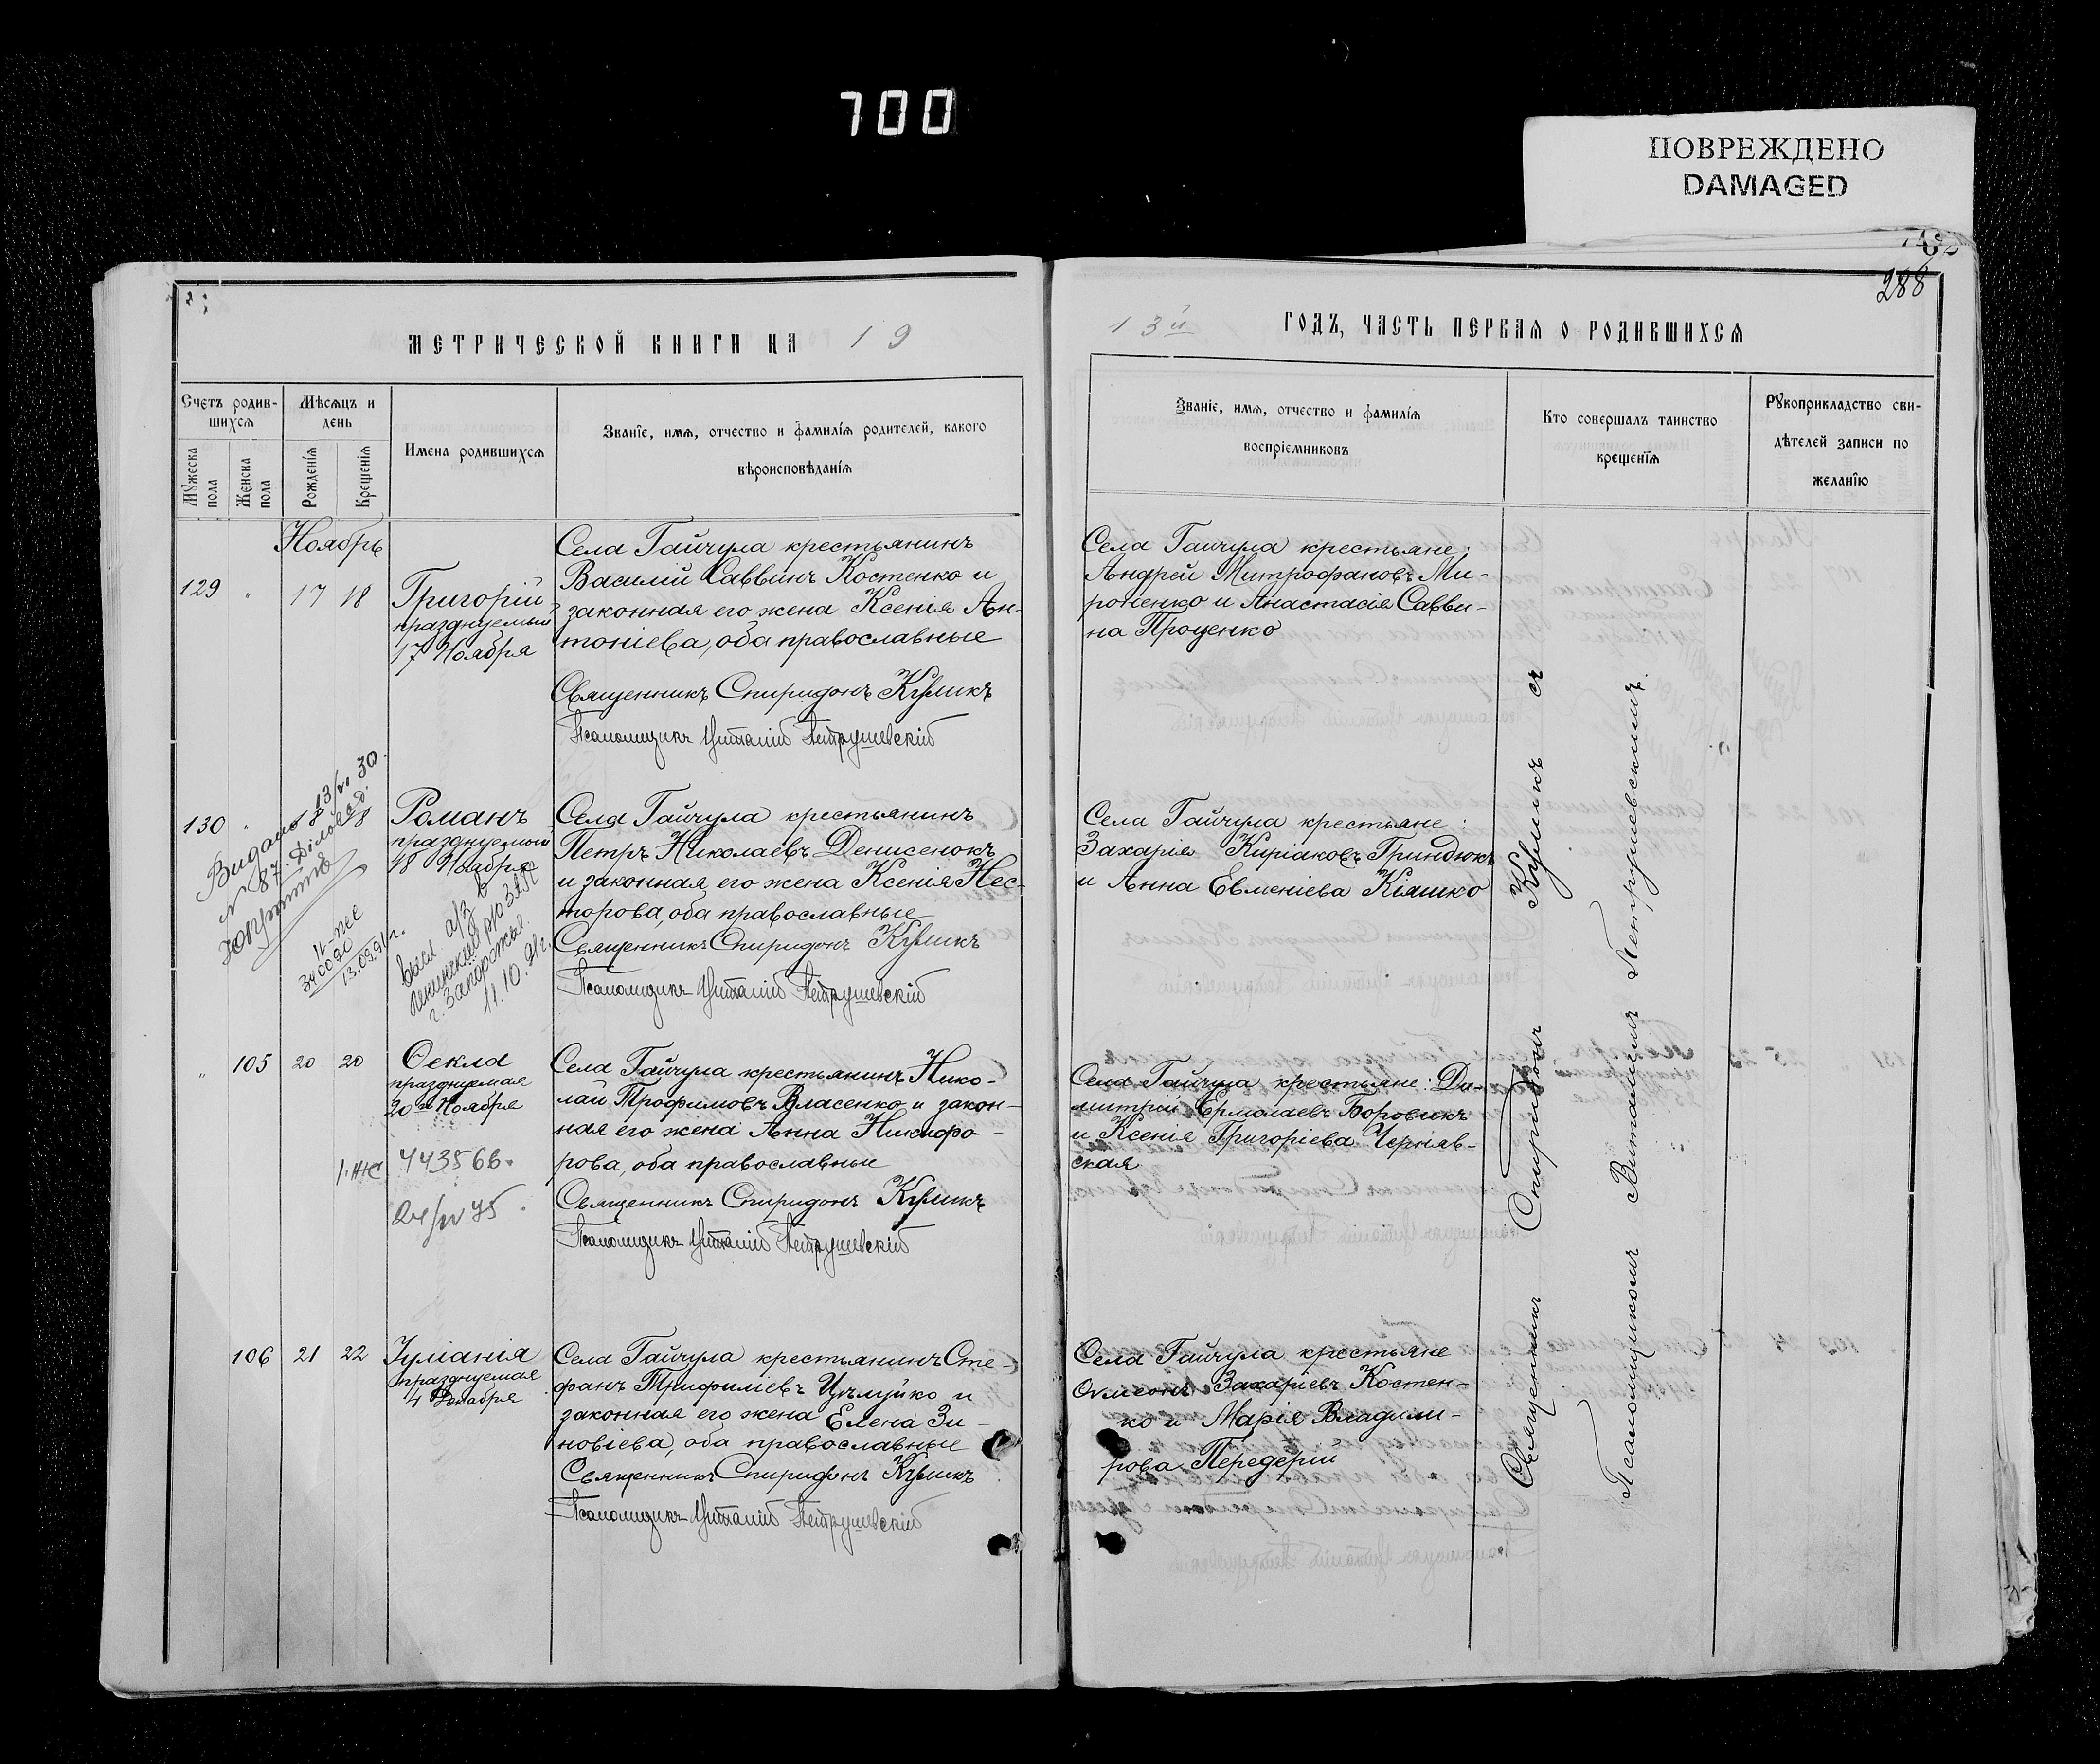 700
ПОВРЕЖДЕНО
DAMAGED
288
МЕТРИЧЕСКОЙ КНИГИ НА 19
13й ГОДЪ, ЧАСТЬ ПЕРВАЯ О РОДИВШИХСЯ
Счетъ родив-
шихся
Мужеска
пола
Женска
пола
Мѣсяцъ и
день
Рожденія
Крещенія
Имена родившихся
Званіе, имя, отчество и фамилія родителей, какого
вѣроисповѣданія
Званіе, имя, отчество и фамилія
воспріемниковъ
Кто совершалъ таинство
крещенія
Рукоприкладство сви-
дѣтелей записи по
желанію
Ноябрь
129 " 17 18
Григорій
празднуемый
17 Ноября
Села Гайчула крестьянинъ
Василій Саввинъ Костенко и
законная его жена Ксенія Ан-
тоніева, оба православные
Священникъ Спиридонъ Куликъ
Псаломщикъ Виталій Петрушевскій
Села Гайчула крестьяне:
Андрей Митрофановъ Ми-
роненко и Анастасія Савви-
на Проценко
130 " 18 18
Романъ
празднуемый
18 Ноября
Села Гайчула крестьянинъ
Петръ Николаевъ Денисенокъ
и законная его жена Ксенія Нес-
торова, оба православные
Священникъ Спиридонъ Куликъ
Псаломщикъ Виталій Петрушевскій
Видано 13/VI 30.
N 87. Діловод.
340020
13.09.91г.
Ленинский р/о ЗАГС
г. Запорожья.
11.10.91г.
Села Гайчула крестьяне:
Захарія Киріаковъ Гриндюкъ
и Анна Евменіева Кіяшко
" 105 20 20
Ѳекла
празднуемая
20го Ноября
I-ЖС 443566.
24/IV 75.
Села Гайчула крестьянинъ Нико-
лай Трофимовъ Власенко и закон-
ная его жена Анна Никифо-
рова, оба православные
Священникъ Спиридонъ Куликъ
Псаломщикъ Виталій Петрушевскій
Села Гайчула крестьяне: Ди-
митрій Ермолаевъ Боровикъ
и Ксенія Григоріева Черняв-
ская
106 21 22
Іуліанія
празднуемая
4 Декабря
Села Гайчула крестьянинъ Сте-
фанъ Трифиліевъ Цѣлуйко и
законная его жена Елена Зи-
новіева, оба православные
Священникъ Спиридонъ Куликъ
Псаломщикъ Виталій Петрушевскій
Села Гайчула крестьяне
Сѵмеонъ Захаріевъ Костен-
ко и Марія Владими-
рова Передерій
Священникъ Спиридонъ Куликъ съ
Псаломщикомъ Виталіемъ Петрушевскимъ.